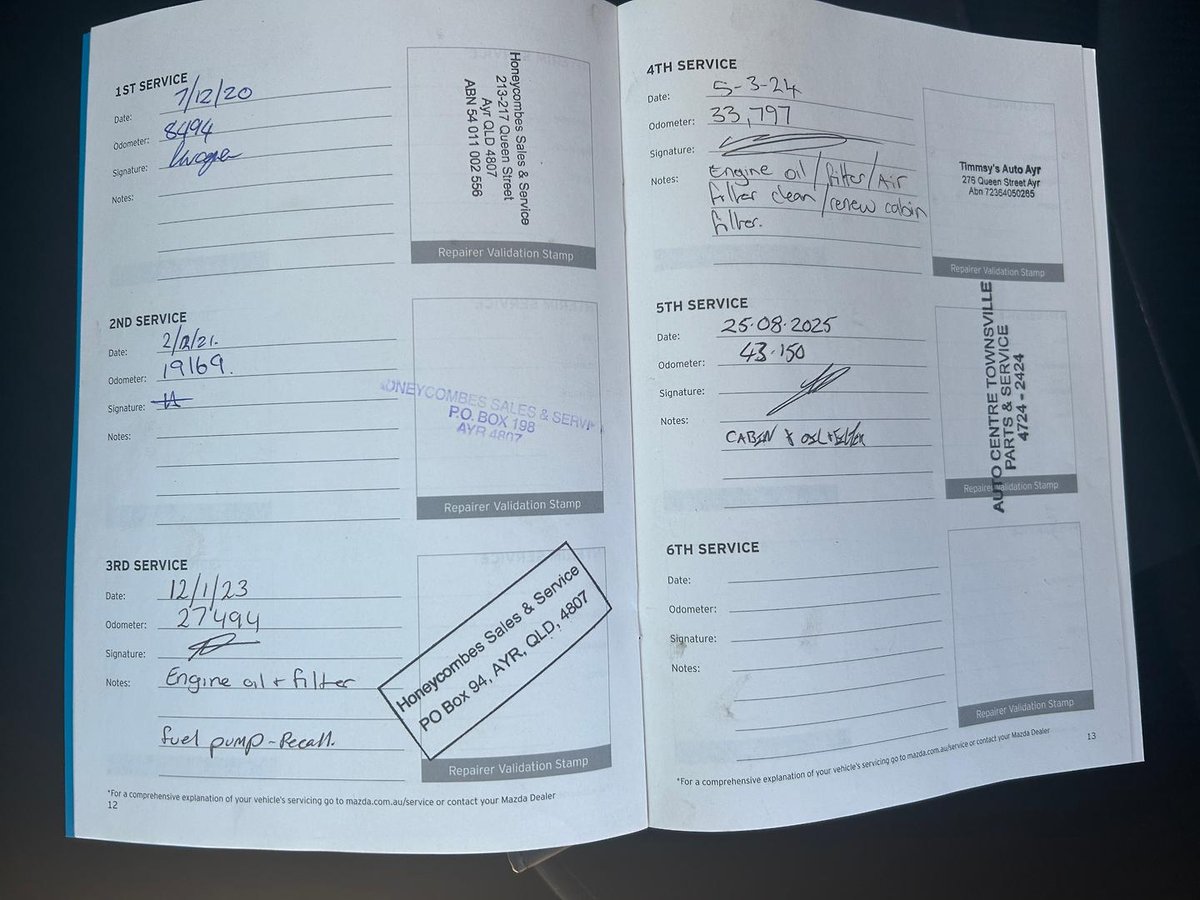 1ST SERVICE
Date: 7/12/20
Odometer: 8494
Signature:
Notes:
Honeycombes Sales & Service
213-217 Queen Street
Ayr QLD 4807
ABN 54 011 002 556
Repairer Validation Stamp
2ND SERVICE
Date: 2/12/21.
Odometer: 19169.
Signature:
Notes:
ONEYCOMBES SALES & SERVI
P.O. BOX 198
AYR 4807
Repairer Validation Stamp
3RD SERVICE
Date: 12/1/23
Odometer: 27'494
Signature:
Notes: Engine oil + filter
fuel pump - Recall.
Honeycombes Sales & Service
PO Box 94, AYR, QLD, 4807
Repairer Validation Stamp
*For a comprehensive explanation of your vehicle's servicing go to mazda.com.au/service or contact your Mazda Dealer
12
4TH SERVICE
Date: 5-3-24
Odometer: 33,797
Signature:
Notes: Engine oil/filter/Air
filter clean/renew cabin
filter.
Timmsy's Auto Ayr
276 Queen Street Ayr
Abn 72364050265
Repairer Validation Stamp
5TH SERVICE
Date: 25.08.2025
Odometer: 43.150
Signature:
Notes:
CABIN + OIL + FILTER
AUTO CENTRE TOWNSVILLE
PARTS & SERVICE
4724 - 2424
Repairer Validation Stamp
6TH SERVICE
Date:
Odometer:
Signature:
Notes:
Repairer Validation Stamp
*For a comprehensive explanation of your vehicle's servicing go to mazda.com.au/service or contact your Mazda Dealer
13